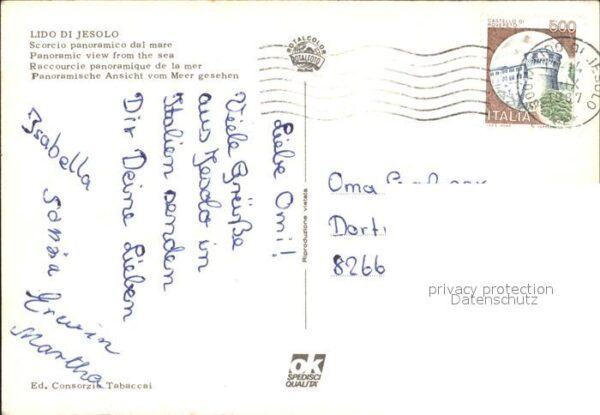 LIDO DI JESOLO
Scorcio panoramico dal mare
Panoramic view from the sea
Raccourcie panoramique de la mer
Panoramische Ansicht vom Meer gesehen
ROTALCOLOR
ROTALFOTO
MILANO
CASTELLO DI
ROVERETO
500
ITALIA
LIDO DI JESOLO
1987
Liebe Omi!
Viele Grüße
aus Jesolo in
Italien senden
Dir Deine Lieben
Isabella
Erwin
Martha
Oma
Dorf
8266
Riproduzione vietata
privacy protection
Datenschutz
OK
SPEDISCI
QUALITA'
Ed. Consorzio Tabaccai